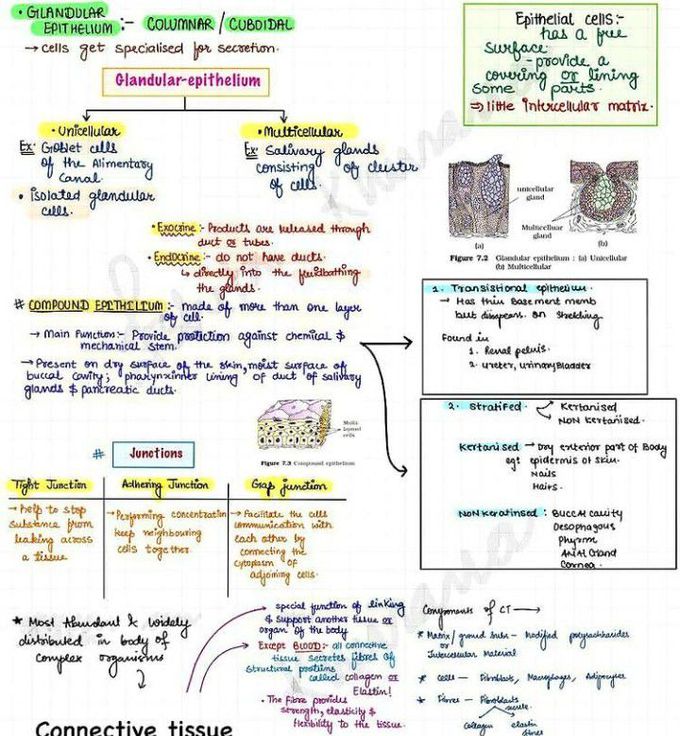 • GLANDULAR
EPITHELIUM :- COLUMNAR / CUBOIDAL
→ cells get specialised for secretion.
Glandular-epithelium
• Unicellular
Ex: Goblet cells
of the Alimentary
Canal.
• isolated glandular
cells.
• Multicellular
Ex Salivary glands
consisting of cluster
of cells.
Epithelial cells:-
has a free
surface
- provide a
covering or lining
some parts.
⇒ little intercellular matrix.
unicellular
gland
Multicelluar
gland
(a)
(b)
Figure 7.2 Glandular epithelium : (a) Unicellular
(b) Multicellular
• Exocrine :- Products are released through
duct or tubes.
• Endocrine :- do not have ducts.
↳ directly into the fluidbathing
the glands.
# COMPOUND EPITHILIUM :- made of more than one layer
of cell.
→ Main Function:- Provide protiction against chemical &
mechanical stem.
→ Present on dry surface of the skin, moist surface of
buccal cavity; pharynxinner lining of duct of salivary
glands & pancreatic ducts.
1. Transistional epithelium.
→ Has thin Basement memb
but disppears. on stretching
Found in
1. Renal pelvis.
2. ureter, urinary Bladder
2. Stratifed
Kertanised
NON Kertanised.
Kertanised → Dry exterior part of Body
eg: epidermis of skin.
Nails
Hairs.
Non Keratinsed : BUCCAL cavity
Oesophagous
Cornea.
Multi
layered
cells
Figure 7.3 Compound epithelium
# Junctions
Tight Junction
→ help to stop
substance from
leaking across
a tissue
Adhering Junction
→ Performing concentration
keep neighbouring
cells together.
Gap junction
→ Facilitate the cells
communication with
each other by
connecting the
cytoplasm of
adjoining cells.
* Most Abundant & widely
distributed in body of
complex organisms
special function of linking
& support another tissue or
organ of the body
• Except BLOOD:- all connective
tissue secretes fibres of
Structural protiens
called collagen or
Elastin!
• The Fibre provides
strength, elasticity &
flexibility to the tissue.
Components of CT →
* Matrix/ ground subs - Modified polysachharides
or
Intercellular Material
* Cells - Fibroblasts, Macrophages, Adipocytes
* Fibres - Fibroblasts
secrete
Collagen elastin
Connective tissue